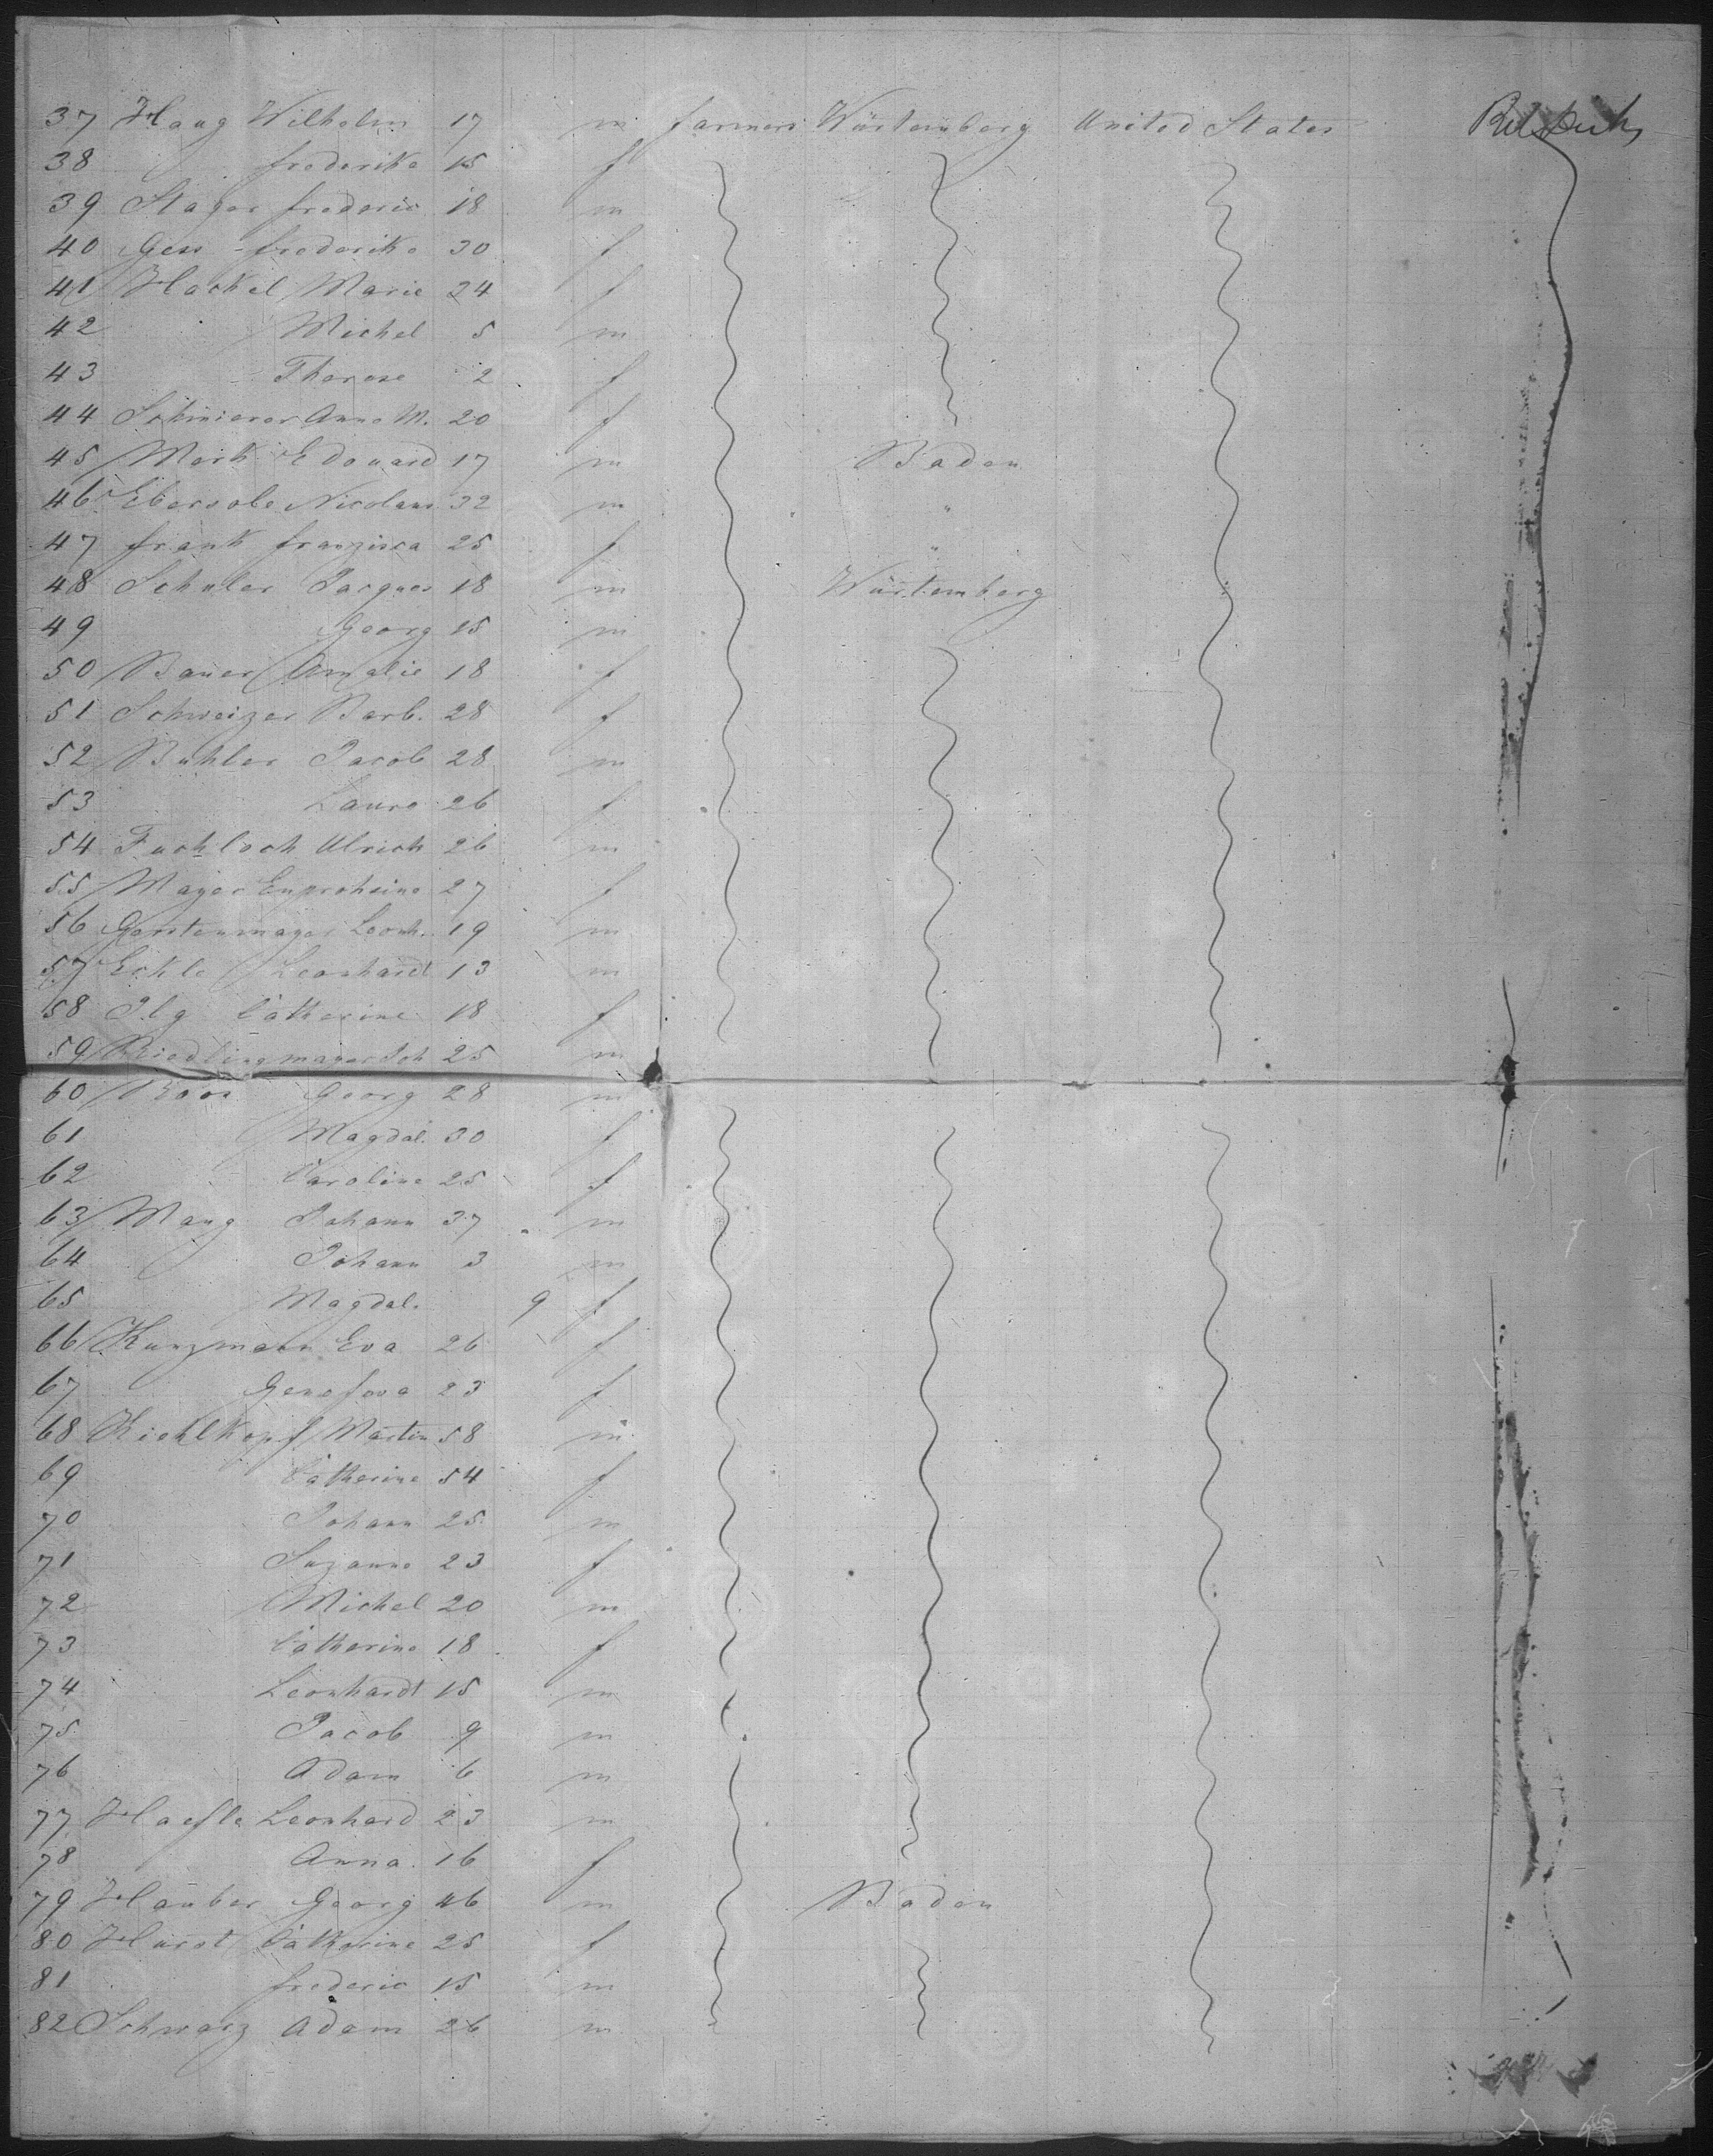 37 Haug Wilhelm 17 m farmers Würtemberg United States
38 frederike 15 f
39 Stager frederic 18 m
40 Gess frederike 30 f
41 Hackel Marie 24 f
42 Michel 5 m
43 Therese 2 f
44 Schmierer Anna M. 20 f
45 Merk Edouard 17 m Baden
46 Ebersole Nicolaus 32 m "
47 frank franzisca 25 f "
48 Schuler Jacques 18 m Würtemberg
49 Georg 15 m
50 Bauer Amalie 18 f
51 Schweizer Barb. 28 f
52 Buhler Jacob 28 m
53 Laura 26 f
54 Fuchloch Ulrich 26 m
55 Mayer 27 f
56 Gerstenmayer Leonh. 19 m
57 Eckle Leonhard 13 m
58 Ilg Catherine 18 f
59 Riedlingmayer Joh 25 m
60 Roos Georg 28 m
61 Magdal. 30 f
62 Caroline 25 f
63 Mang Johann 37 m
64 Johann 3 m
65 Magdal. 9 f
66 Kunzmann Eva 26 f
67 Genofeva 23 f
68 Kichlkopf Martin 58 m
69 Catherine 54 f
70 Johann 25 m
71 Suzanna 23 f
72 Michel 20 m
73 Catherine 18 f
74 Leonhardt 15 m
75 Jacob 9 m
76 Adam 6 m
77 Haefle Leonhard 23 m
78 Anna 16 f
79 Hauber Georg 46 m Baden
80 Hurst Catherine 25 f
81 frederic 15 m
82 Schwarz Adam 26 m